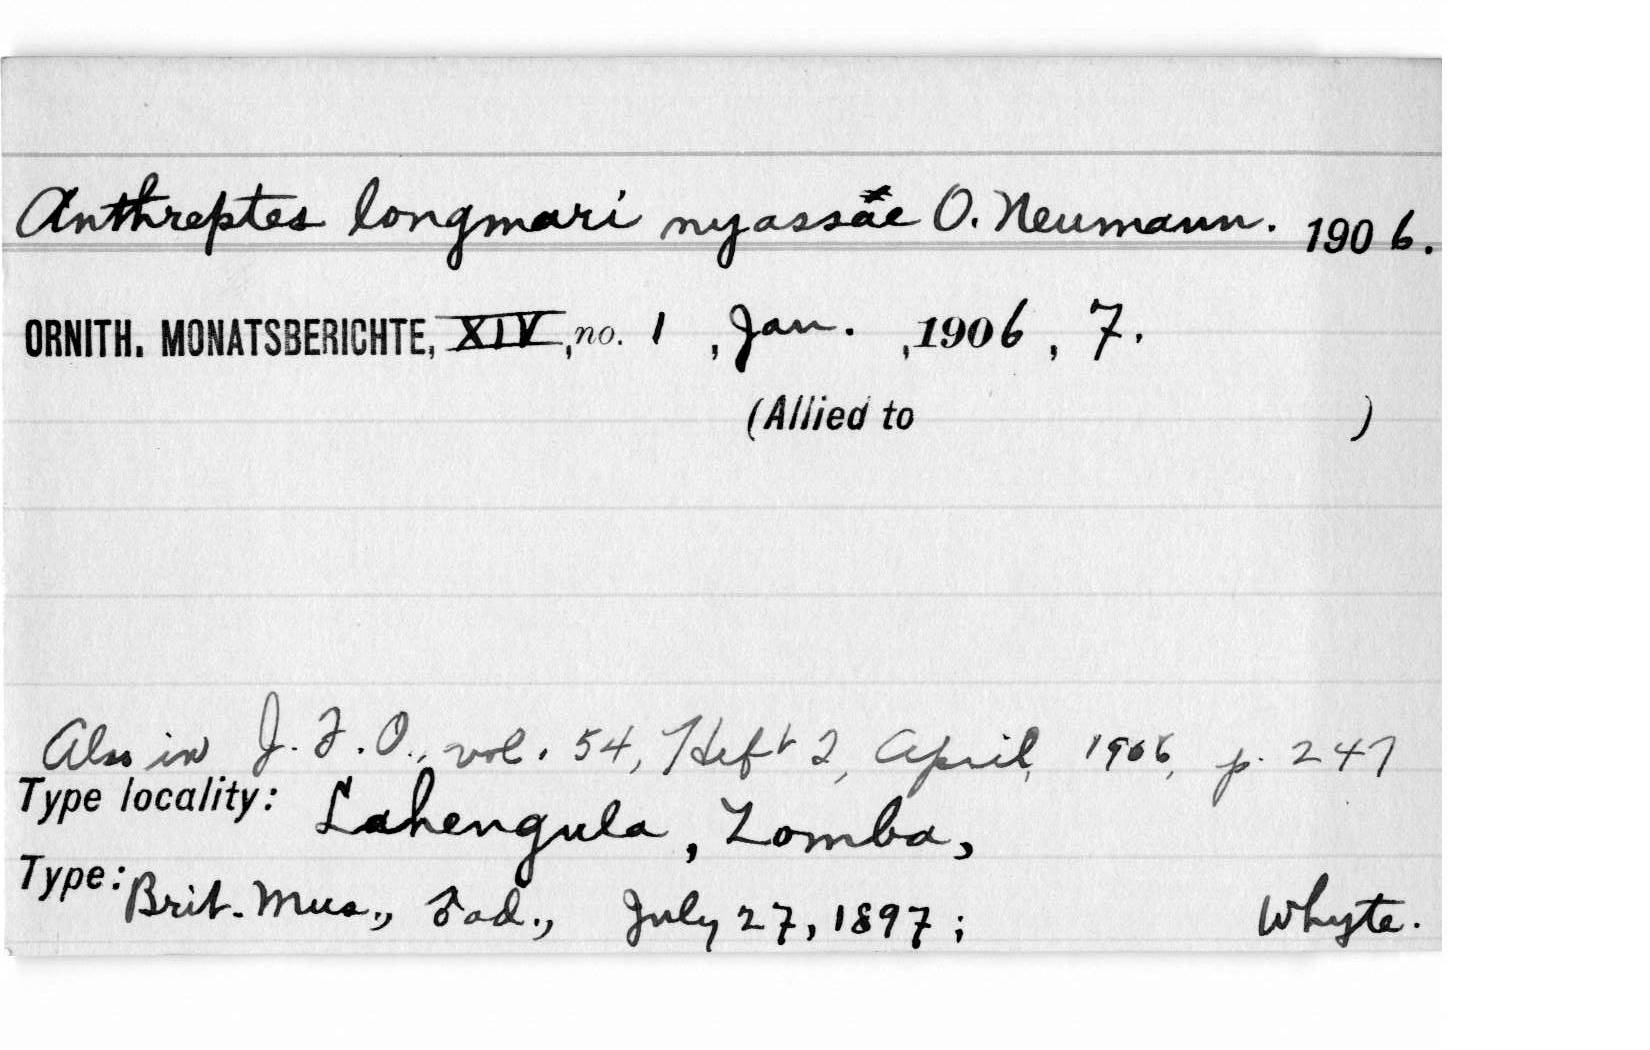 Anthreptes longmari nyassae O. Neumann. 1906.
ORNITH. MONATSBERICHTE, XIV, no. 1, Jan., 1906, 7.
(Allied to )
Also in J. F. O., vol. 54, Heft 2, April, 1906, p. 247
Type locality: Lahengula, Zomba,
Type: Brit. Mus., ♂ ad., July 27, 1897; Whyte.